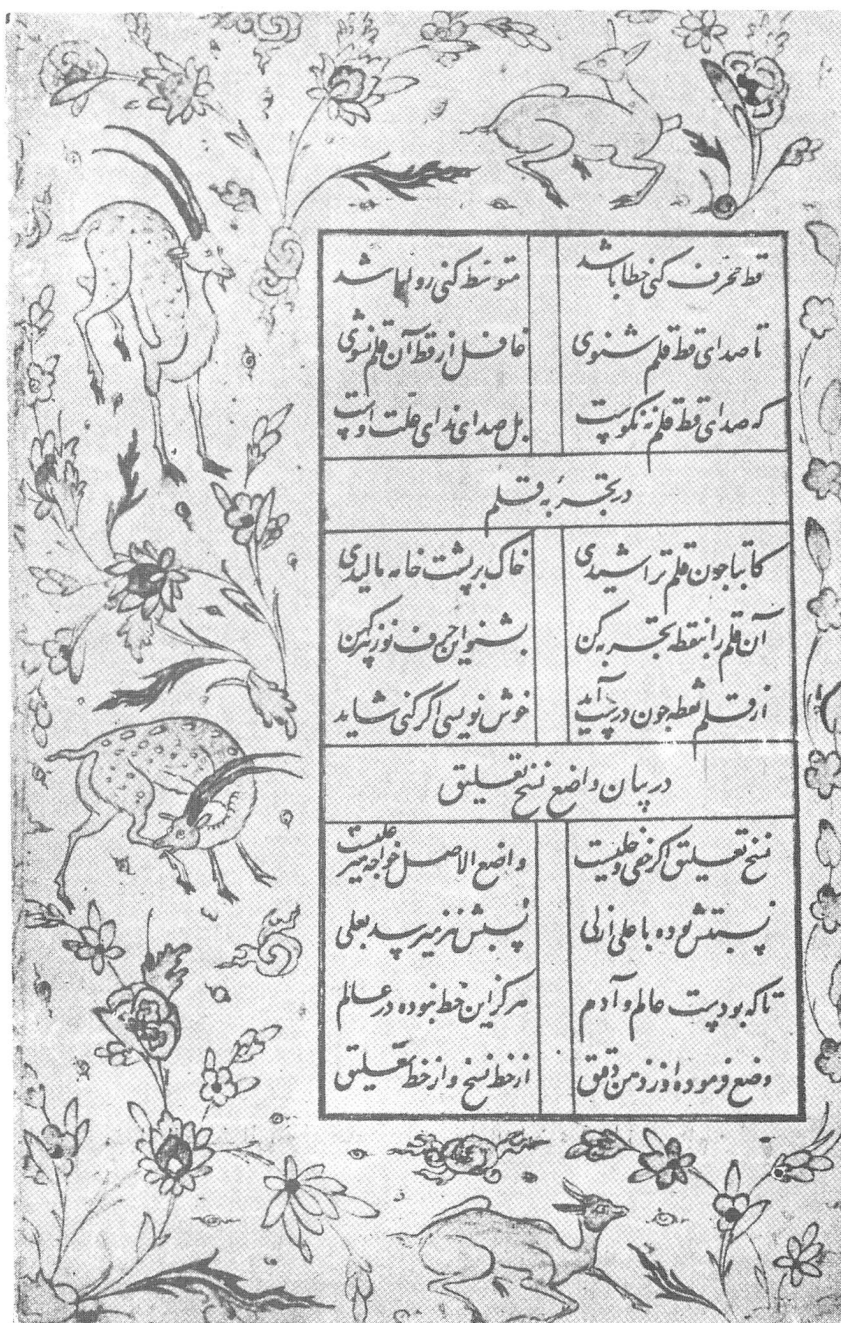 قط محرف کنی خطا باشد متوسط کنی روا باشد
تا صدای قط قلم شنوی غافل از قط آن قلم نشوی
که صدای قط قلم نه نکوست بل صدای ندای علت اوست
در تجربهٔ قلم
کاتبا چون قلم تراشیدی خاک بر پشت خامه مالیدی
آن قلم را بنقطه تجربه کن بشنو این حرف نوز پیر کهن
از قلم نقطه چون درست آید خوش نویسی اگر کنی شاید
در بیان واضع نسخ تعلیق
نسخ تعلیق اگر خفی و جلیست واضع الاصل خواجه میر علیست
نسبتش بوده با علی ازلی نسبش نیز میرسد بعلی
تا که بودست عالم و آدم هرگز این خط نبوده در عالم
وضع فرموده او ز ذهن دقیق از خط نسخ و از خط تعلیق